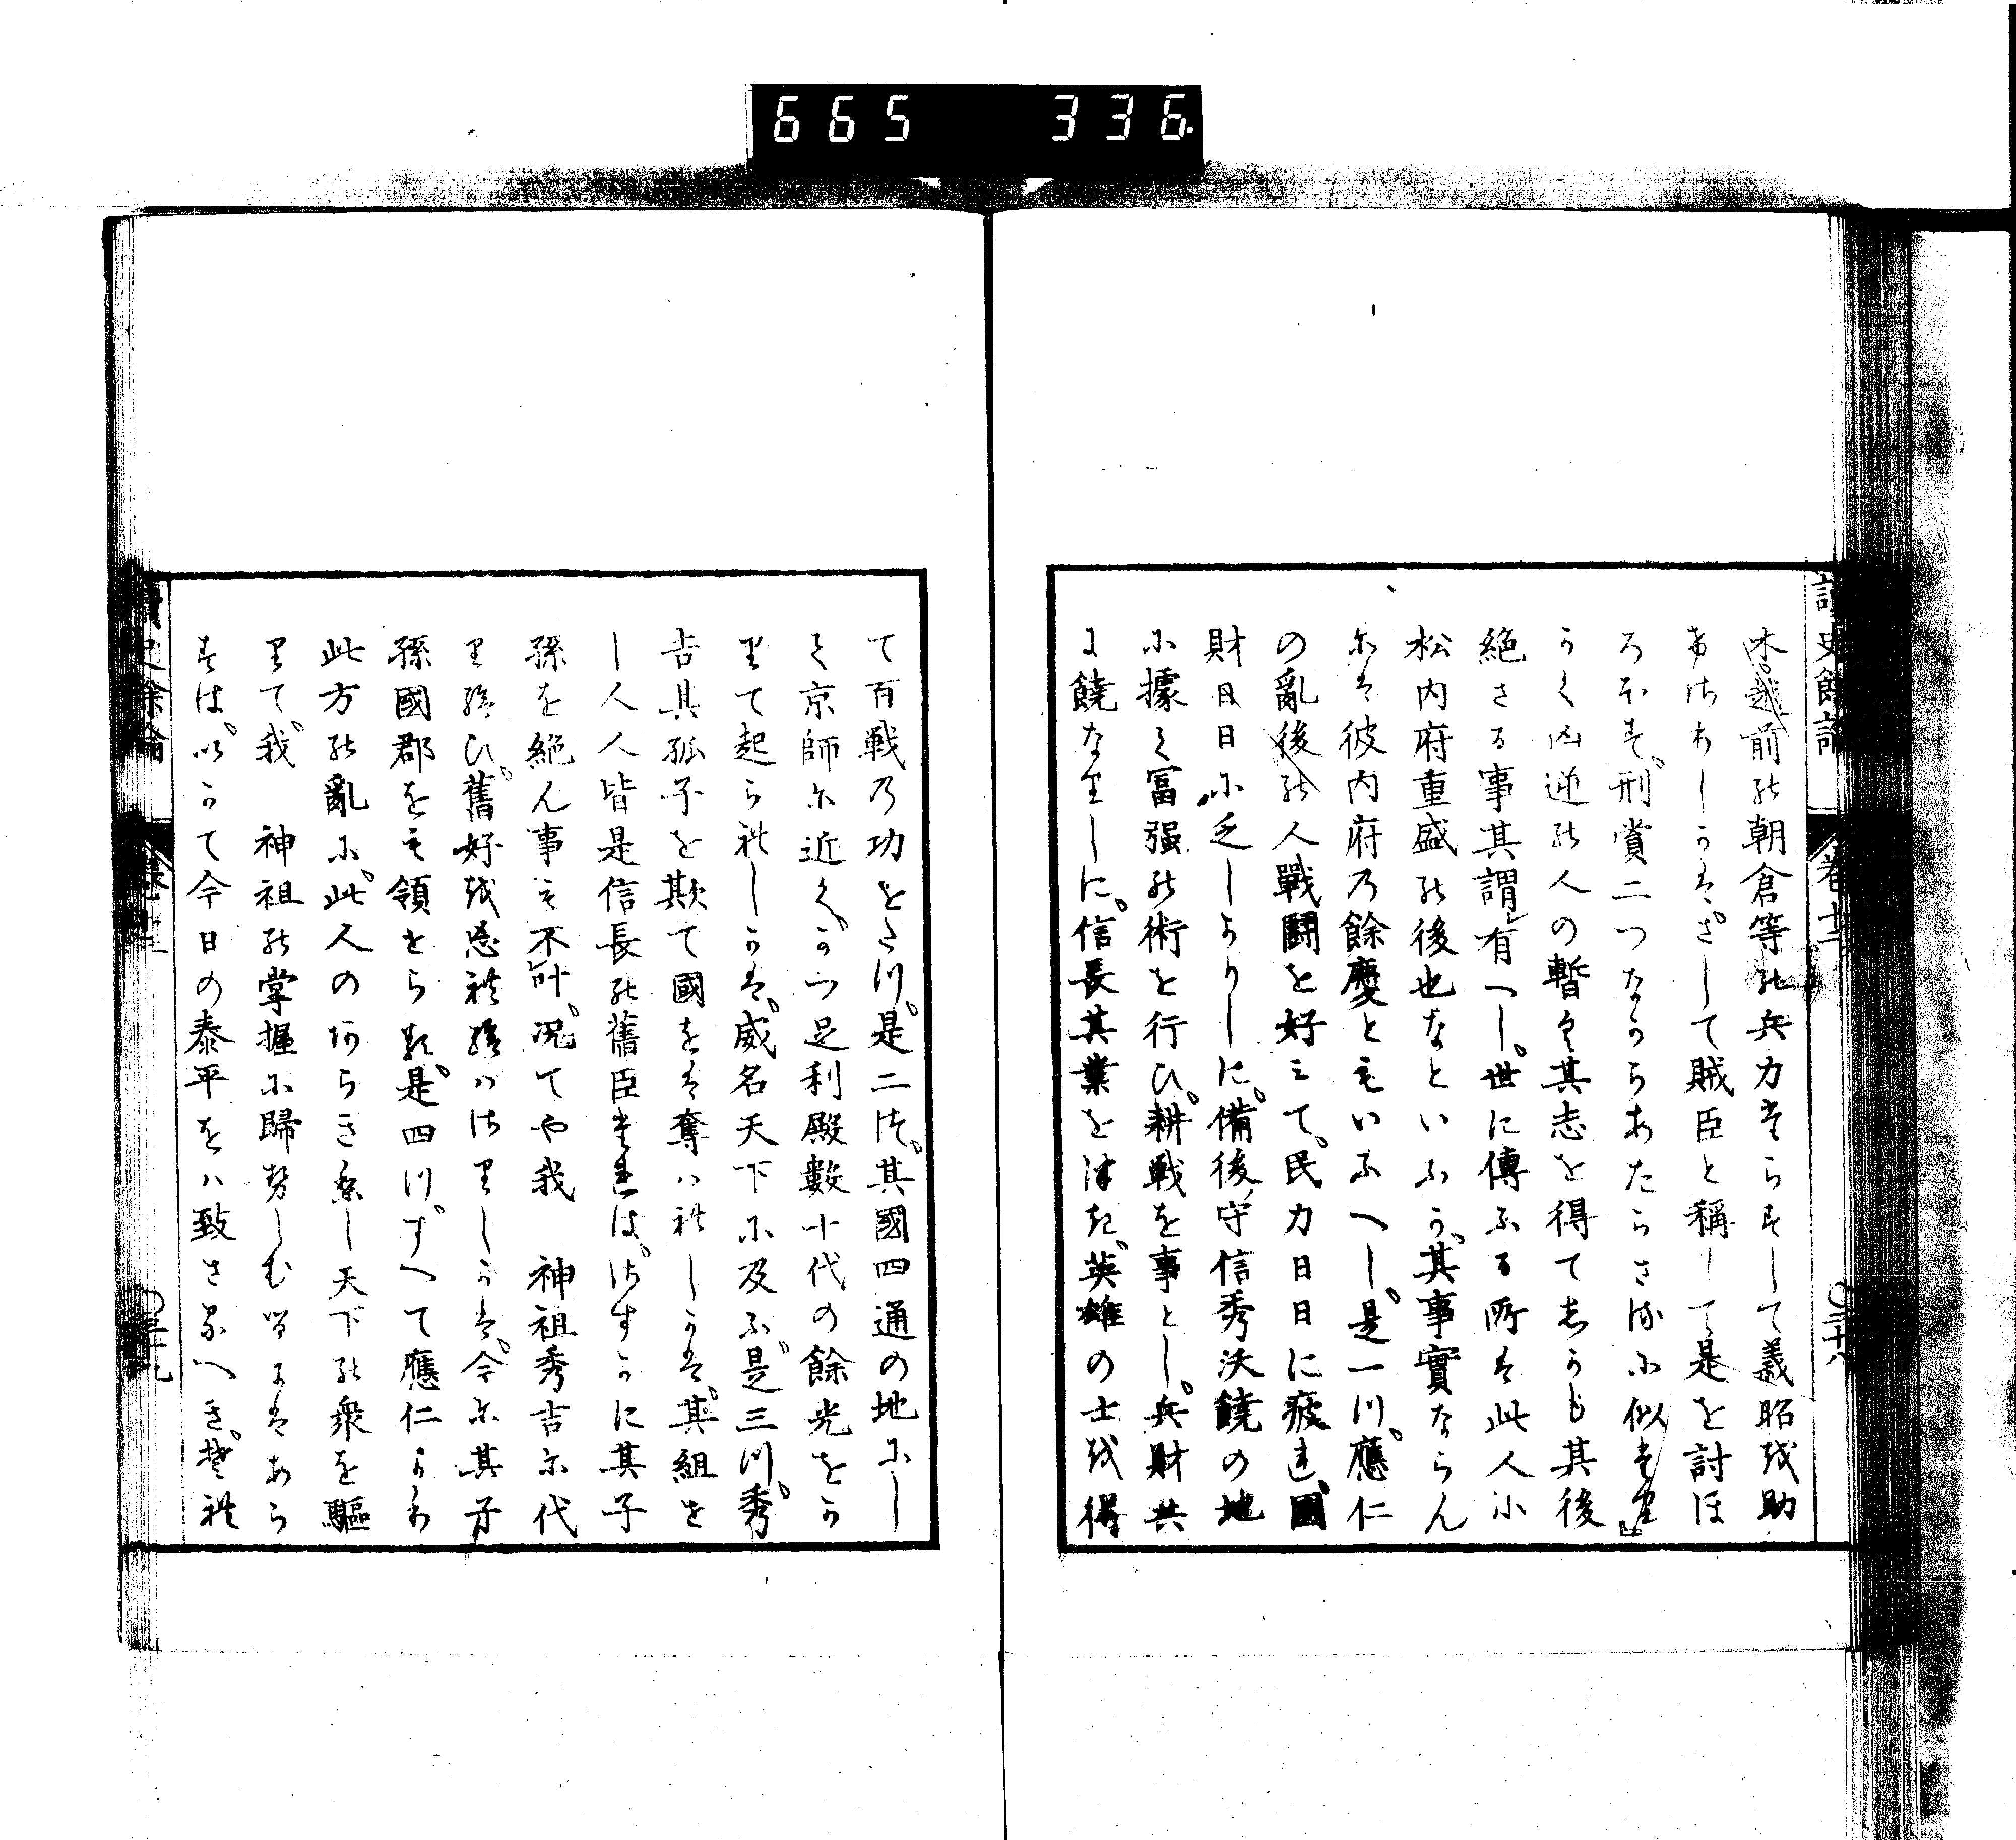 665 336
讀史餘論 卷十二 〇三十八
木越前能朝倉等能兵力たらすして義昭越助
けさわしうはさして賊臣と稱して是を討ほ
ろほす。刑賞二つなからあたらさるに似たり』
うく凶逆能人の暫く其志を得てあうも其後
絶さる事其謂有へし。世に傳ふる所は此人小
松内府重盛能後也なといふう。其事實ならん
尓は彼内府乃餘慶ともいふへし。是一川。應仁
の亂後能人戰鬪を好ミて。民力日日に疲連。國
財日日小乏しかりしに。備後守信秀沃饒の地
小據て富强能術を行ひ。耕戰を事とし。兵財共
に饒なりしに。信長其業を津き。英雄の士越得
て百戰乃功をたつ。是二つ。其國四通の地にし
て京師尓近く。かつ足利殿數十代の餘光をか
りて起られしかは。威名天下小及ふ。是三川。秀
吉其孤子を欺て國をは奪ハれしかは。其組せ
し人人皆是信長能舊臣たれは。さすかに其子
孫を絶ん事も不叶。況てや我 神祖秀吉尓代
り給ひ。舊好越思禮給ハさりしかは。今尓其子
孫國郡をも領せられ。是四川。すへて應仁よりわ
此方能亂に。此人の阿らき氣し天下能衆を驅
りて。我 神祖能掌握小歸勢しむ留にはあら
すは。いかて今日の泰平をハ致さるへき。楚禮
讀史餘論 卷十二 〇三十九